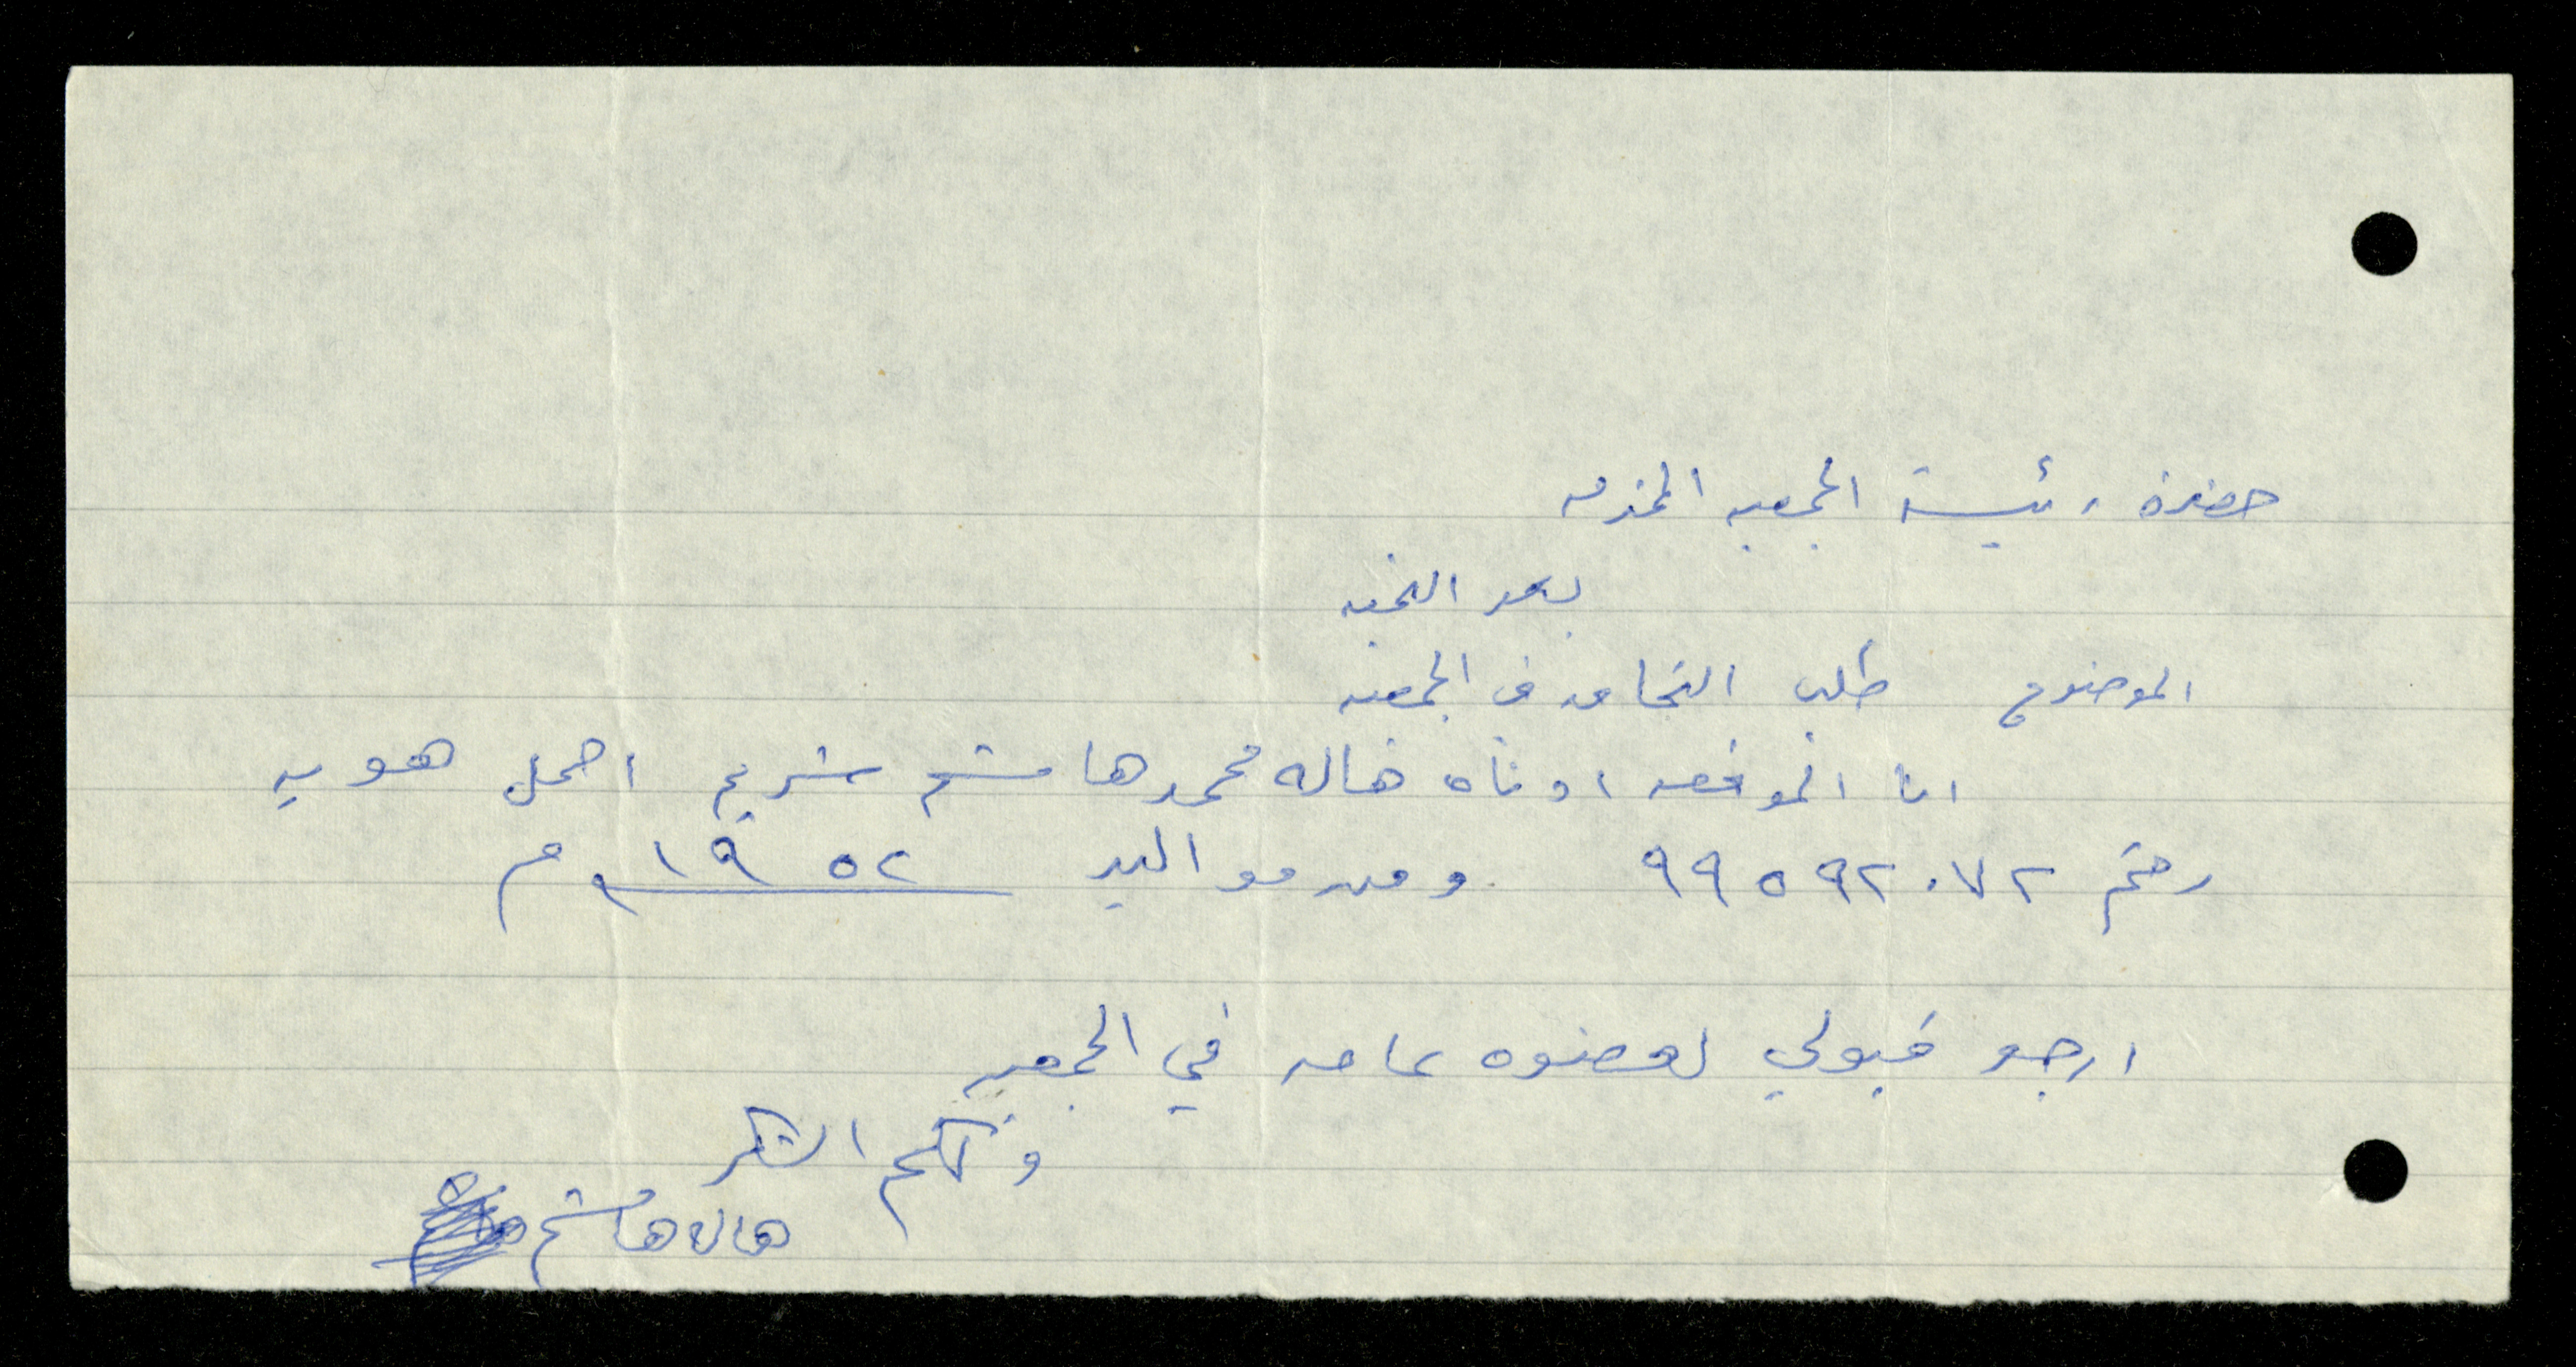 حضرة رئيسة الجمعيه المحترمه
بعد التحيه
الموضوع طلب انتخابي في الجمعيه
انا الموقعه ادناه هاله محمد هاشم شريم احمل هويه
رقم ٩٩٥٩٢٠٧٢ ومن مواليد ١٩٥٢ م
ارجو قبولي لعضوه عامه في الجمعيه
ولكم الشكر
هاله هاشم